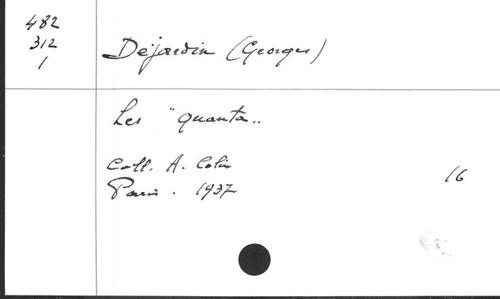 482
312
1
Déjardin (Georges)
Les "quanta"
Coll. A. Colin
Paris. 1937
16